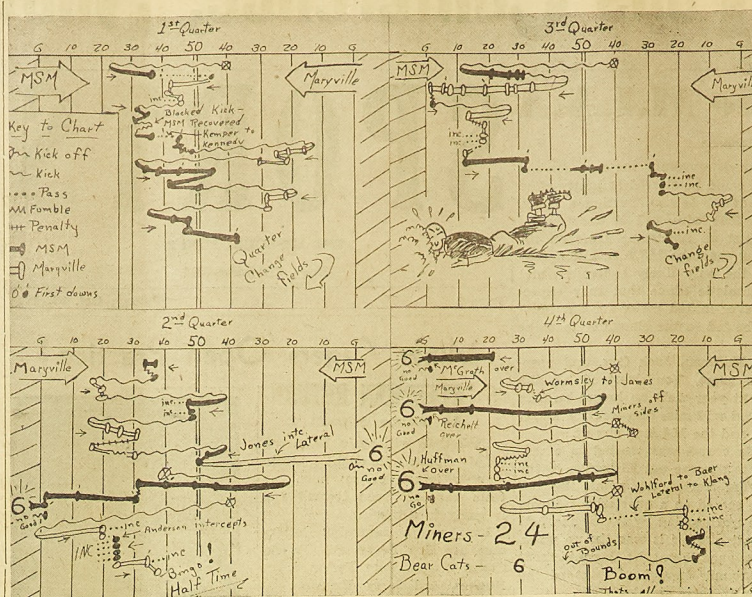 1st Quarter
G 10 20 30 40 50 40 30 20 10 G
MSM
Maryville
inc
Blocked Kick-
MSM Recovered
Kemper to
Kennedy
Key to Chart
Kick off
Kick
Pass
Fumble
Penalty
MSM
Maryville
First downs
Quarter
Change
fields
3rd Quarter
G 10 20 30 40 50 40 30 20 10 G
MSM
inc
inc
inc
inc
inc.
Change
fields
2nd Quarter
G 10 20 30 40 50 40 30 20 10 G
Maryville
MSM
inc.
int.
Jones intc.
Lateral
6
no
Good
6
no
Good
inc
Anderson intercepts
INC
inc
Bingo!
Half Time
4th Quarter
10 20 30 40 50 40 30 20 10 G
6
no
Good
McGrath over
Maryville
MSM
Wormsley to James
6
no
Good
Reicholt
over
Miners off
sides
Huffman
over
6
no
Go
inc
inc
Wohlford to Baer
Lateral to Klang
inc
inc
Miners - 24
Bear Cats - 6
out of
Bounds
Boom!
Thats all